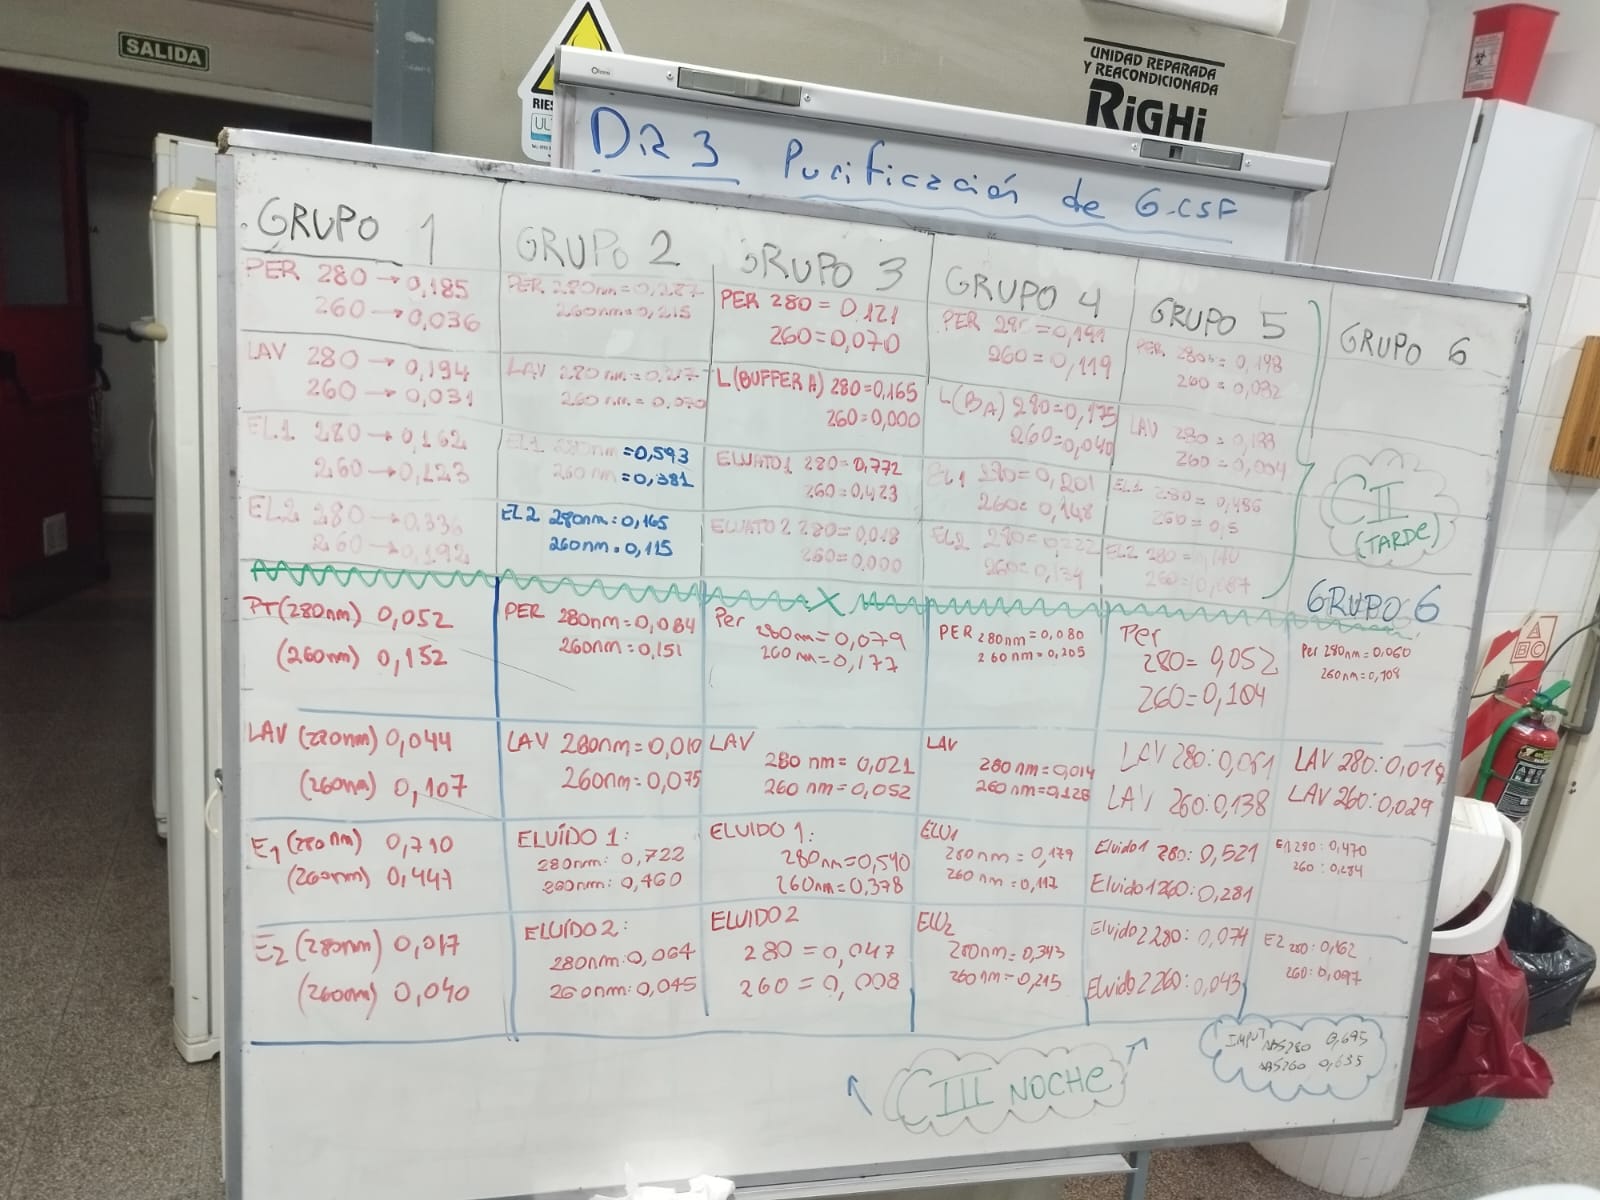 SALIDA
UNIDAD REPARADA
Y REACONDICIONADA
RiGHi
DÍA 3 Purificación de G-CSF
GRUPO 1
PER 280 → 0,185
260 → 0,036
LAV 280 → 0,194
260 → 0,031
EL.1 280 → 0,162
260 → 0,123
EL2 280 → 0,336
260 → 0,192
GRUPO 2
PER 280nm = 0,287
260nm = 0,215
LAV 280 nm =
260 nm = 0,070
EL1 280nm = 0,593
260 nm = 0,381
EL2 280nm = 0,165
260nm = 0,115
GRUPO 3
PER 280 = 0.121
260 = 0,070
L(BUFFER A) 280 = 0,165
260 = 0,000
ELUATO 1 280 = 0,772
260 = 0,423
ELUATO 2 280 = 0,018
260 = 0.000
GRUPO 4
PER 280 = 0,191
260 = 0,119
L(BA) 280 = 0,175
260 = 0,040
EL1 280 = 0,201
260 = 0,148
EL2 280 = 0,222
260 = 0,134
GRUPO 5
PER 280 = 0,198
260 = 0,092
LAV 280 = 0,193
260 = 0,004
EL1 280 = 0,486
260 = 0,5
EL2 280 = 0,170
260 = 0,087
GRUPO 6
CII
(TARDE)
PT (280nm) 0,052
(260nm) 0,152
LAV (280nm) 0,044
(260nm) 0,107
E1 (280nm) 0,710
(260nm) 0,447
E2 (280nm) 0,017
(260nm) 0,040
PER 280nm = 0,084
260nm = 0,151
LAV 280nm = 0,010
260nm = 0,075
ELUÍDO 1:
280nm: 0,722
260nm: 0,460
ELUÍDO 2:
280nm: 0,064
260nm: 0,045
Per 280nm = 0,079
260nm = 0,177
LAV
280 nm = 0,021
260 nm = 0,052
ELUIDO 1:
280nm = 0,540
260nm = 0,378
ELUIDO 2
280 = 0,047
260 = 0,008
PER 280nm = 0,080
260nm = 0,205
LAV
280 nm = 0,014
260 nm = 0,128
ELU1
280 nm = 0,179
260 nm = 0,117
ELU2
280nm = 0,343
260nm = 0,215
Per
280 = 0,052
260 = 0,104
LAV 280: 0,061
LAV 260: 0,138
Eluido 1 280: 0,521
Eluido 1 260: 0,281
Eluido 2 280: 0,074
Eluido 2 260: 0,043
GRUPO 6
Per 280nm = 0,060
260nm = 0,108
LAV 280: 0,019
LAV 260: 0,029
E1 280: 0,470
260: 0,284
E2 280: 0,162
260: 0,097
CIII NOCHE
IMPUT ABS280 0,695
ABS260 0,635